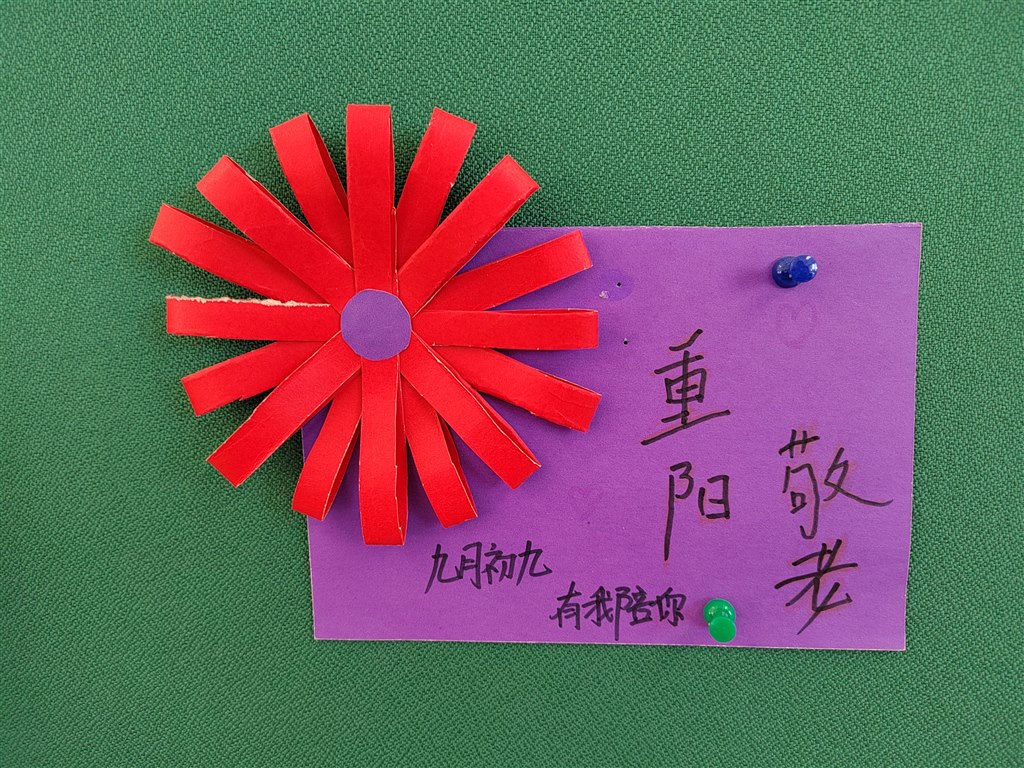 敬老
重阳
九月初九
有我陪你